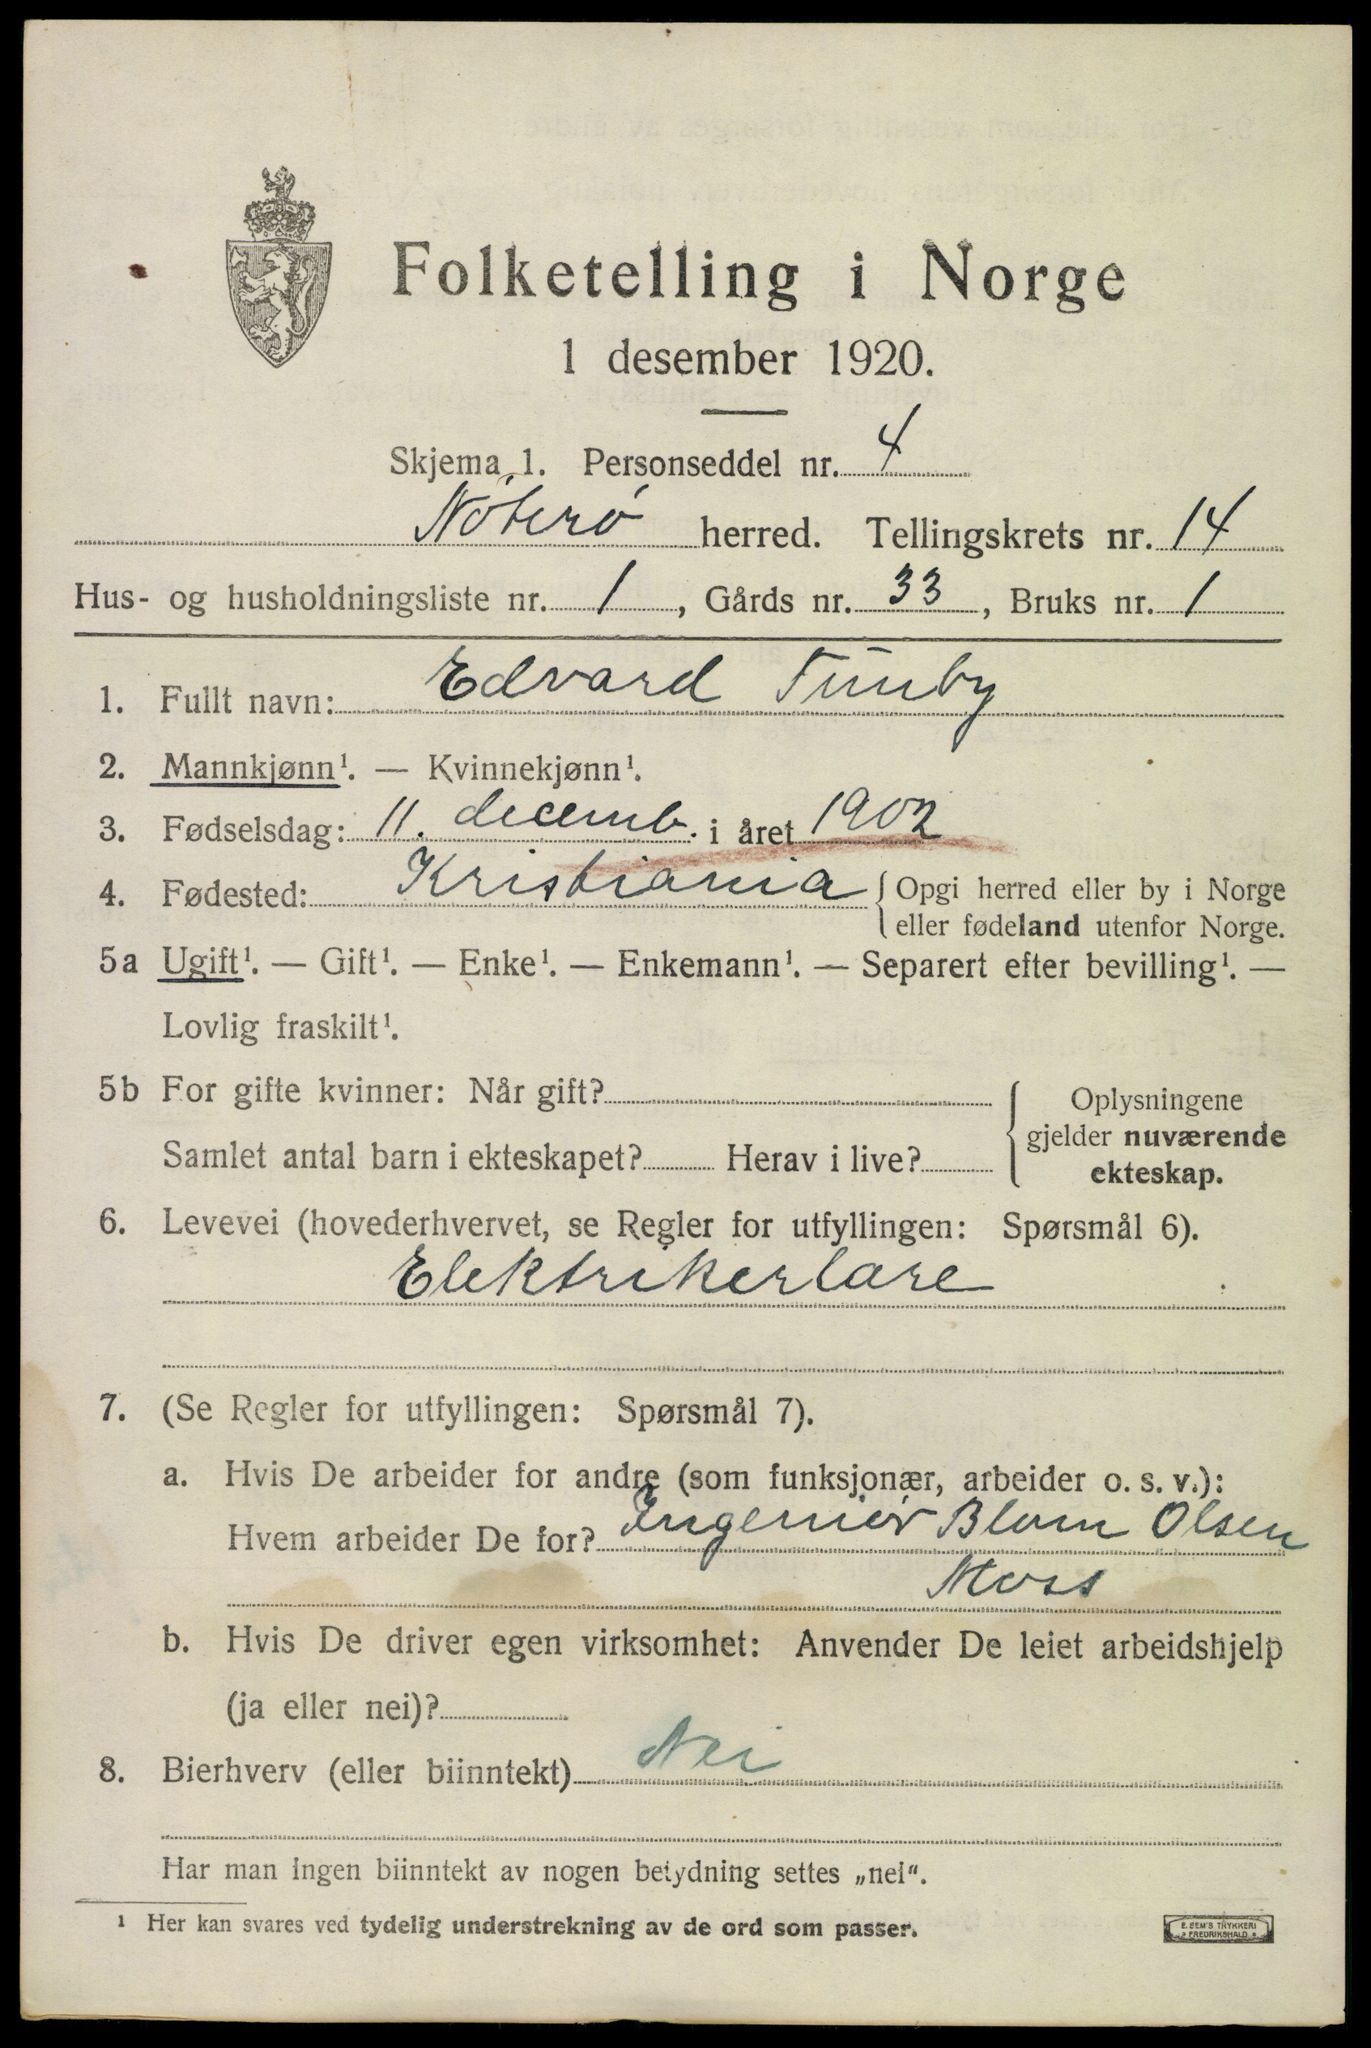 Folketelling i Norge
1 desember 1920.
Skjema 1. Personseddel nr. 4
Nøterø herred. Tellingskrets nr. 14
Hus- og husholdningsliste nr. 1, Gårds nr. 33, Bruks nr. 1
1. Fullt navn: Edvard Tunby
2. Mannkjønn¹. — Kvinnekjønn¹.
3. Fødselsdag: 11. decemb. i året 1902
4. Fødested: Kristiania { Opgi herred eller by i Norge
eller fødeland utenfor Norge.
5a Ugift¹. — Gift¹. — Enke¹. — Enkemann¹. — Separert efter bevilling¹. —
Lovlig fraskilt¹.
5b For gifte kvinner: Når gift?
Samlet antal barn i ekteskapet? Herav i live?
Oplysningene
gjelder nuværende
ekteskap.
6. Levevei (hovederhvervet, se Regler for utfyllingen: Spørsmål 6).
Elektrikerlære
7. (Se Regler for utfyllingen: Spørsmål 7).
a. Hvis De arbeider for andre (som funksjonær, arbeider o. s. v.):
Hvem arbeider De for? Ingeniør Blom Olsen
Moss
b. Hvis De driver egen virksomhet: Anvender De leiet arbeidshjelp
(ja eller nei)?
8. Bierhverv (eller biinntekt) Nei
Har man ingen biinntekt av nogen betydning settes „nei".
¹ Her kan svares ved tydelig understrekning av de ord som passer.
E. SEM'S TRYKKERI
FREDRIKSHALD